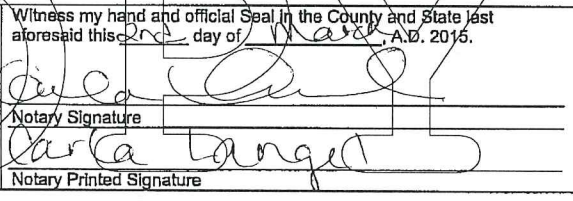 Witness my hand and official Seal in the County and State last
aforesaid this 2nd day of March, A.D. 2015.
Notary Signature
Carla
Notary Printed Signature